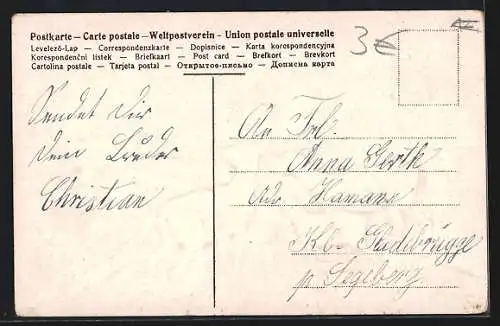 Postkarte — Carte postale — Weltpostverein - Union postale universelle
Levelező-Lap — Correspondenzkarte — Dopisnice — Karta korespondencyjna
Korespondenční listek — Briefkaart — Post card — Brefkort — Brevkort
Cartolina postale — Tarjeta postal — Открытое-письмо — Дописна карта
3€
Sendet Dir
Dein Bruder
Christian
An Frl.
Anna Gerth
adr Hamann
Kl. Gladebrügge
p Segeberg